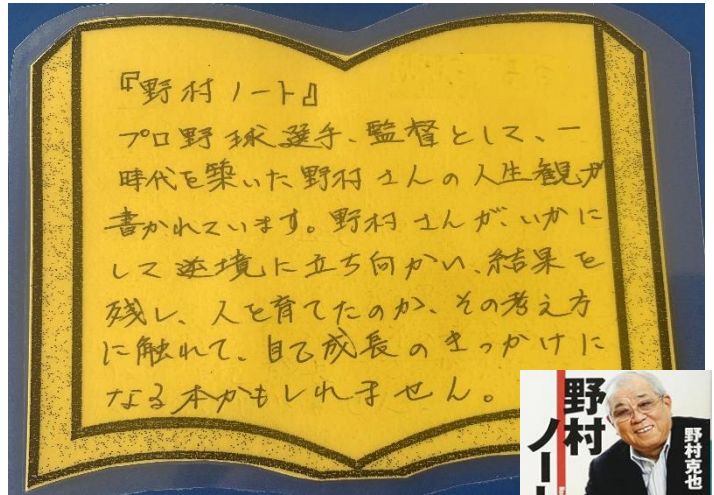 『野村ノート』
プロ野球選手、監督として、一
時代を築いた野村さんの人生観が
書かれています。野村さんが、いかに
して逆境に立ち向かい、結果を
残し、人を育てたのか、その考え方
に触れて、自己成長のきっかけに
なる本かもしれません。
野村
ノー
野村克也